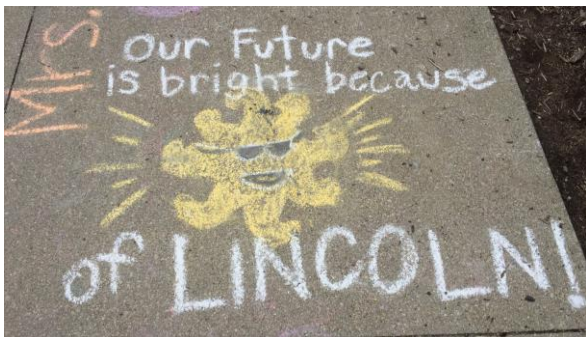 Mrs.
Our Future
is bright because
of LINCOLN!